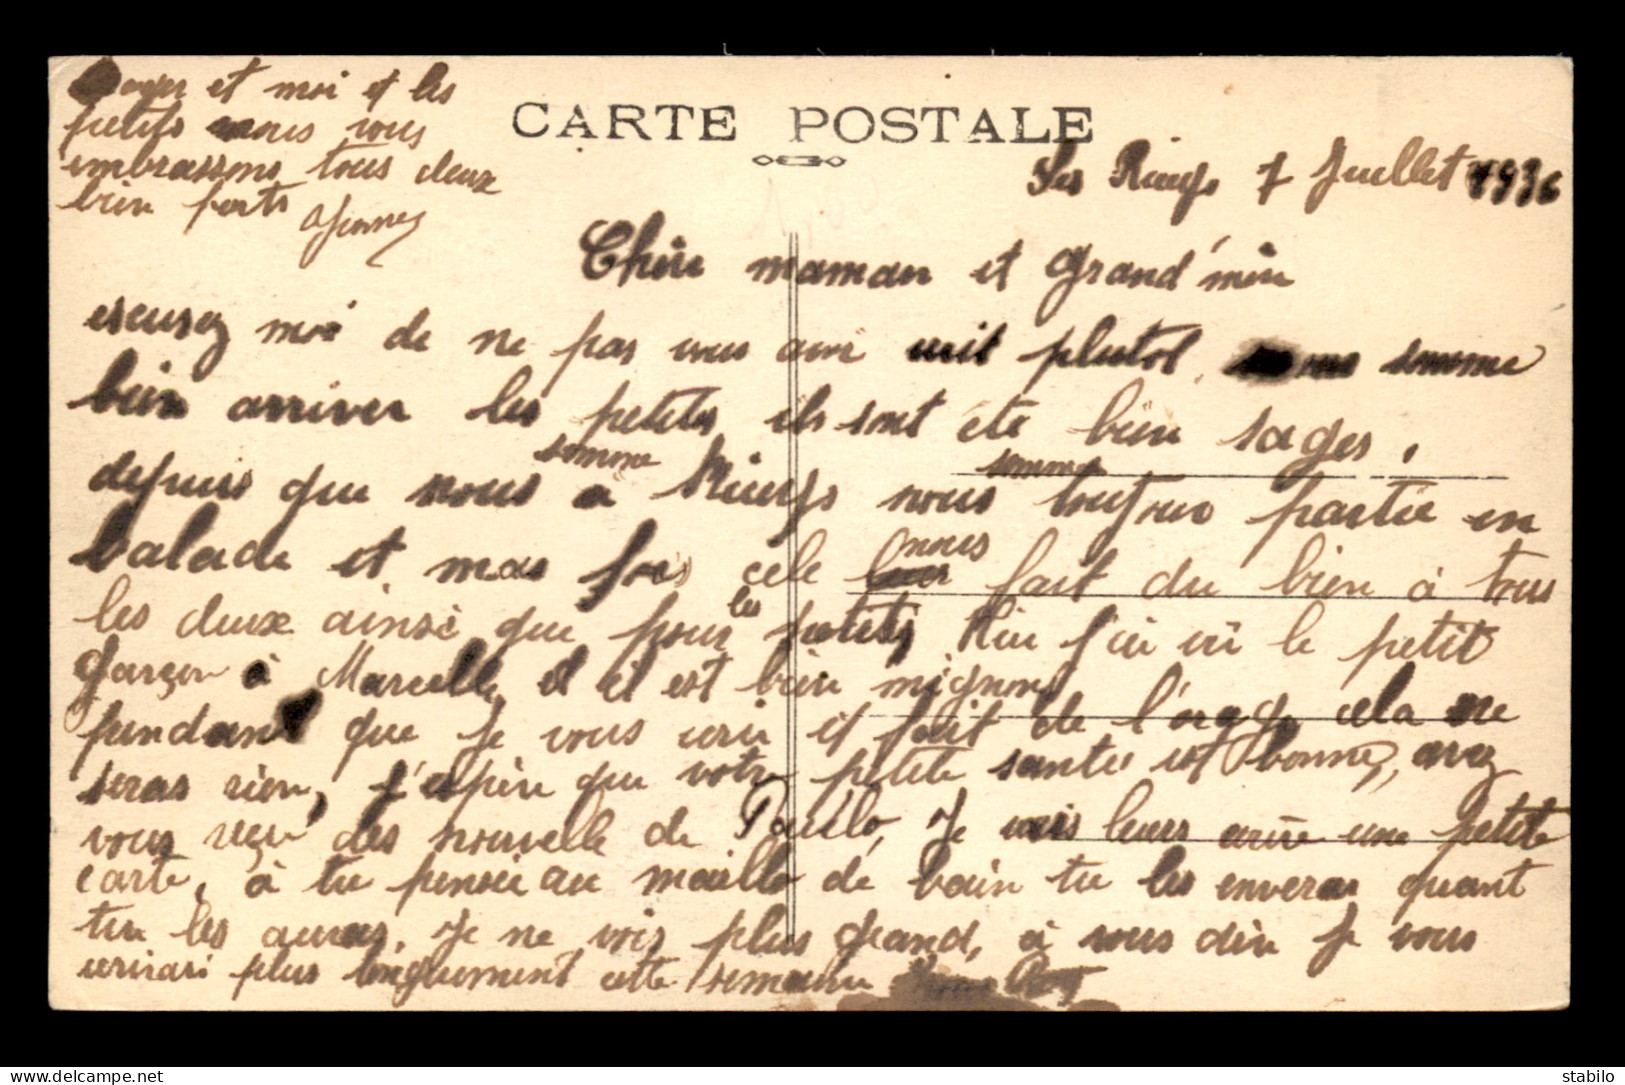 CARTE POSTALE
Les Rieux 7 Juillet 1936
Chère maman et Grand'mère
escusez moi de ne pas vous avoir ecrit plutot, nous somme
bien arriver les petites ils sont été bien sages,
depuis que nous somme a Rieux nous somme toujour partie en
balade et mas fois cele nous fait du bien à tous
les deux ainsi que pour les petits, Hier j'ai vu le petit
garçon à Marcelle, il il est bien mignon,
pendant que je vous ecrie il fait de l'orage cela ne
seras rien, j'espère que votre petite santée est bonne, avez
vous reçu des nouvelle de Paulo, Je vais leurs ecrire une petite
carte, à tu pensée au maillo de bain tu les enveras quant
tu les auras. Je ne vois plus grand, à vous dire je vous
ecrirai plus longuement cette semaine
Roger et moi et les
petits nous vous
embrassons tous deux
bien forts